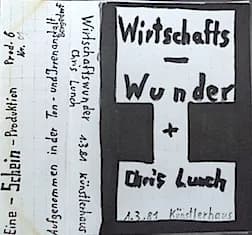 Eine - Schein - Produktion Prod. 6
Aufgenommen in der Ton- und Irrenanstalt
Wirtschaftswunder
Chris Lunch
1.3.81 Künstlerhaus
Wirtschafts
-
Wunder
+
Chris Lunch
1.3.81 Künstlerhaus